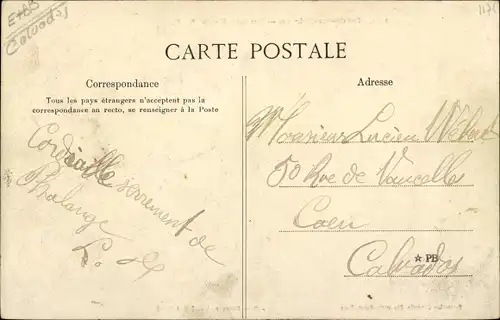 E+B5
Calvados
1171
CARTE POSTALE
Correspondance
Tous les pays étrangers n'acceptent pas la
correspondance au recto, se renseigner à la Poste
Cordialle serrement de
Phalange
L.
Adresse
Monsieur Lucien
50 Rue de Vaucelle
Caen
☆ PB
Calvados